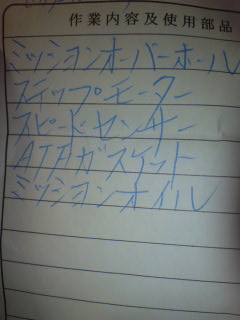 作業内容及使用部品
ミッションオーバーホール
ステップモーター
スピードセンサー
ATFガスケット
ミッションオイル